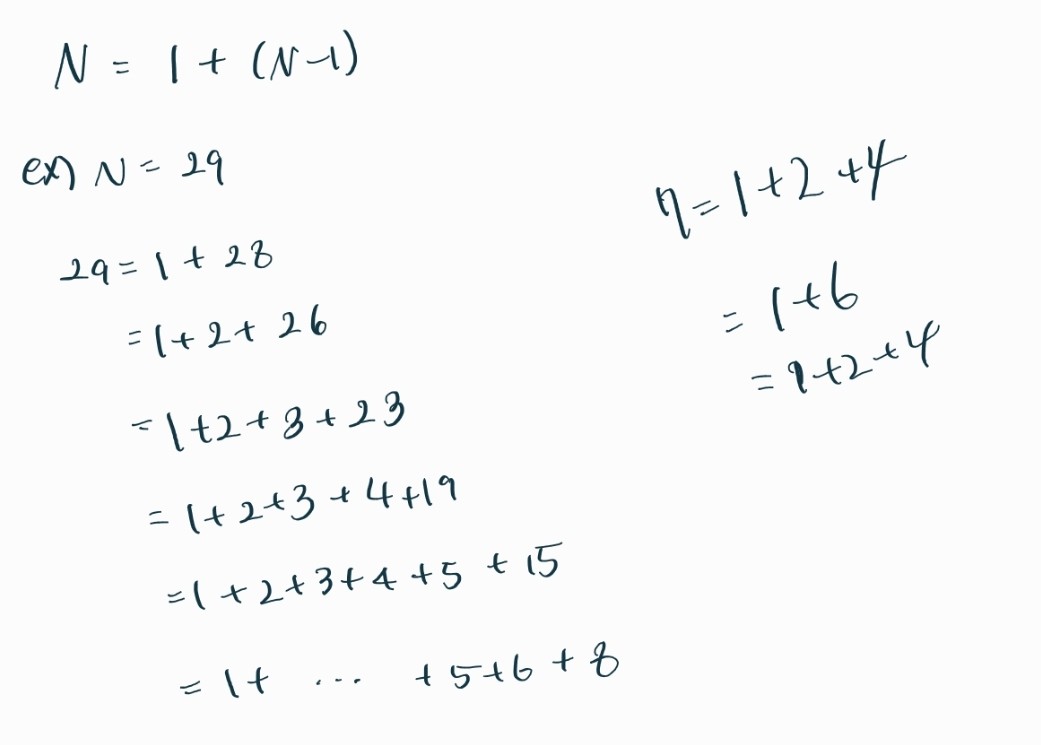 N = 1 + (N-1)
ex) N = 29
29 = 1 + 28
= 1 + 2 + 26
= 1 + 2 + 3 + 23
= 1 + 2 + 3 + 4 + 19
= 1 + 2 + 3 + 4 + 5 + 15
= 1 + ... + 5 + 6 + 8
7 = 1 + 2 + 4
= 1 + 6
= 1 + 2 + 4